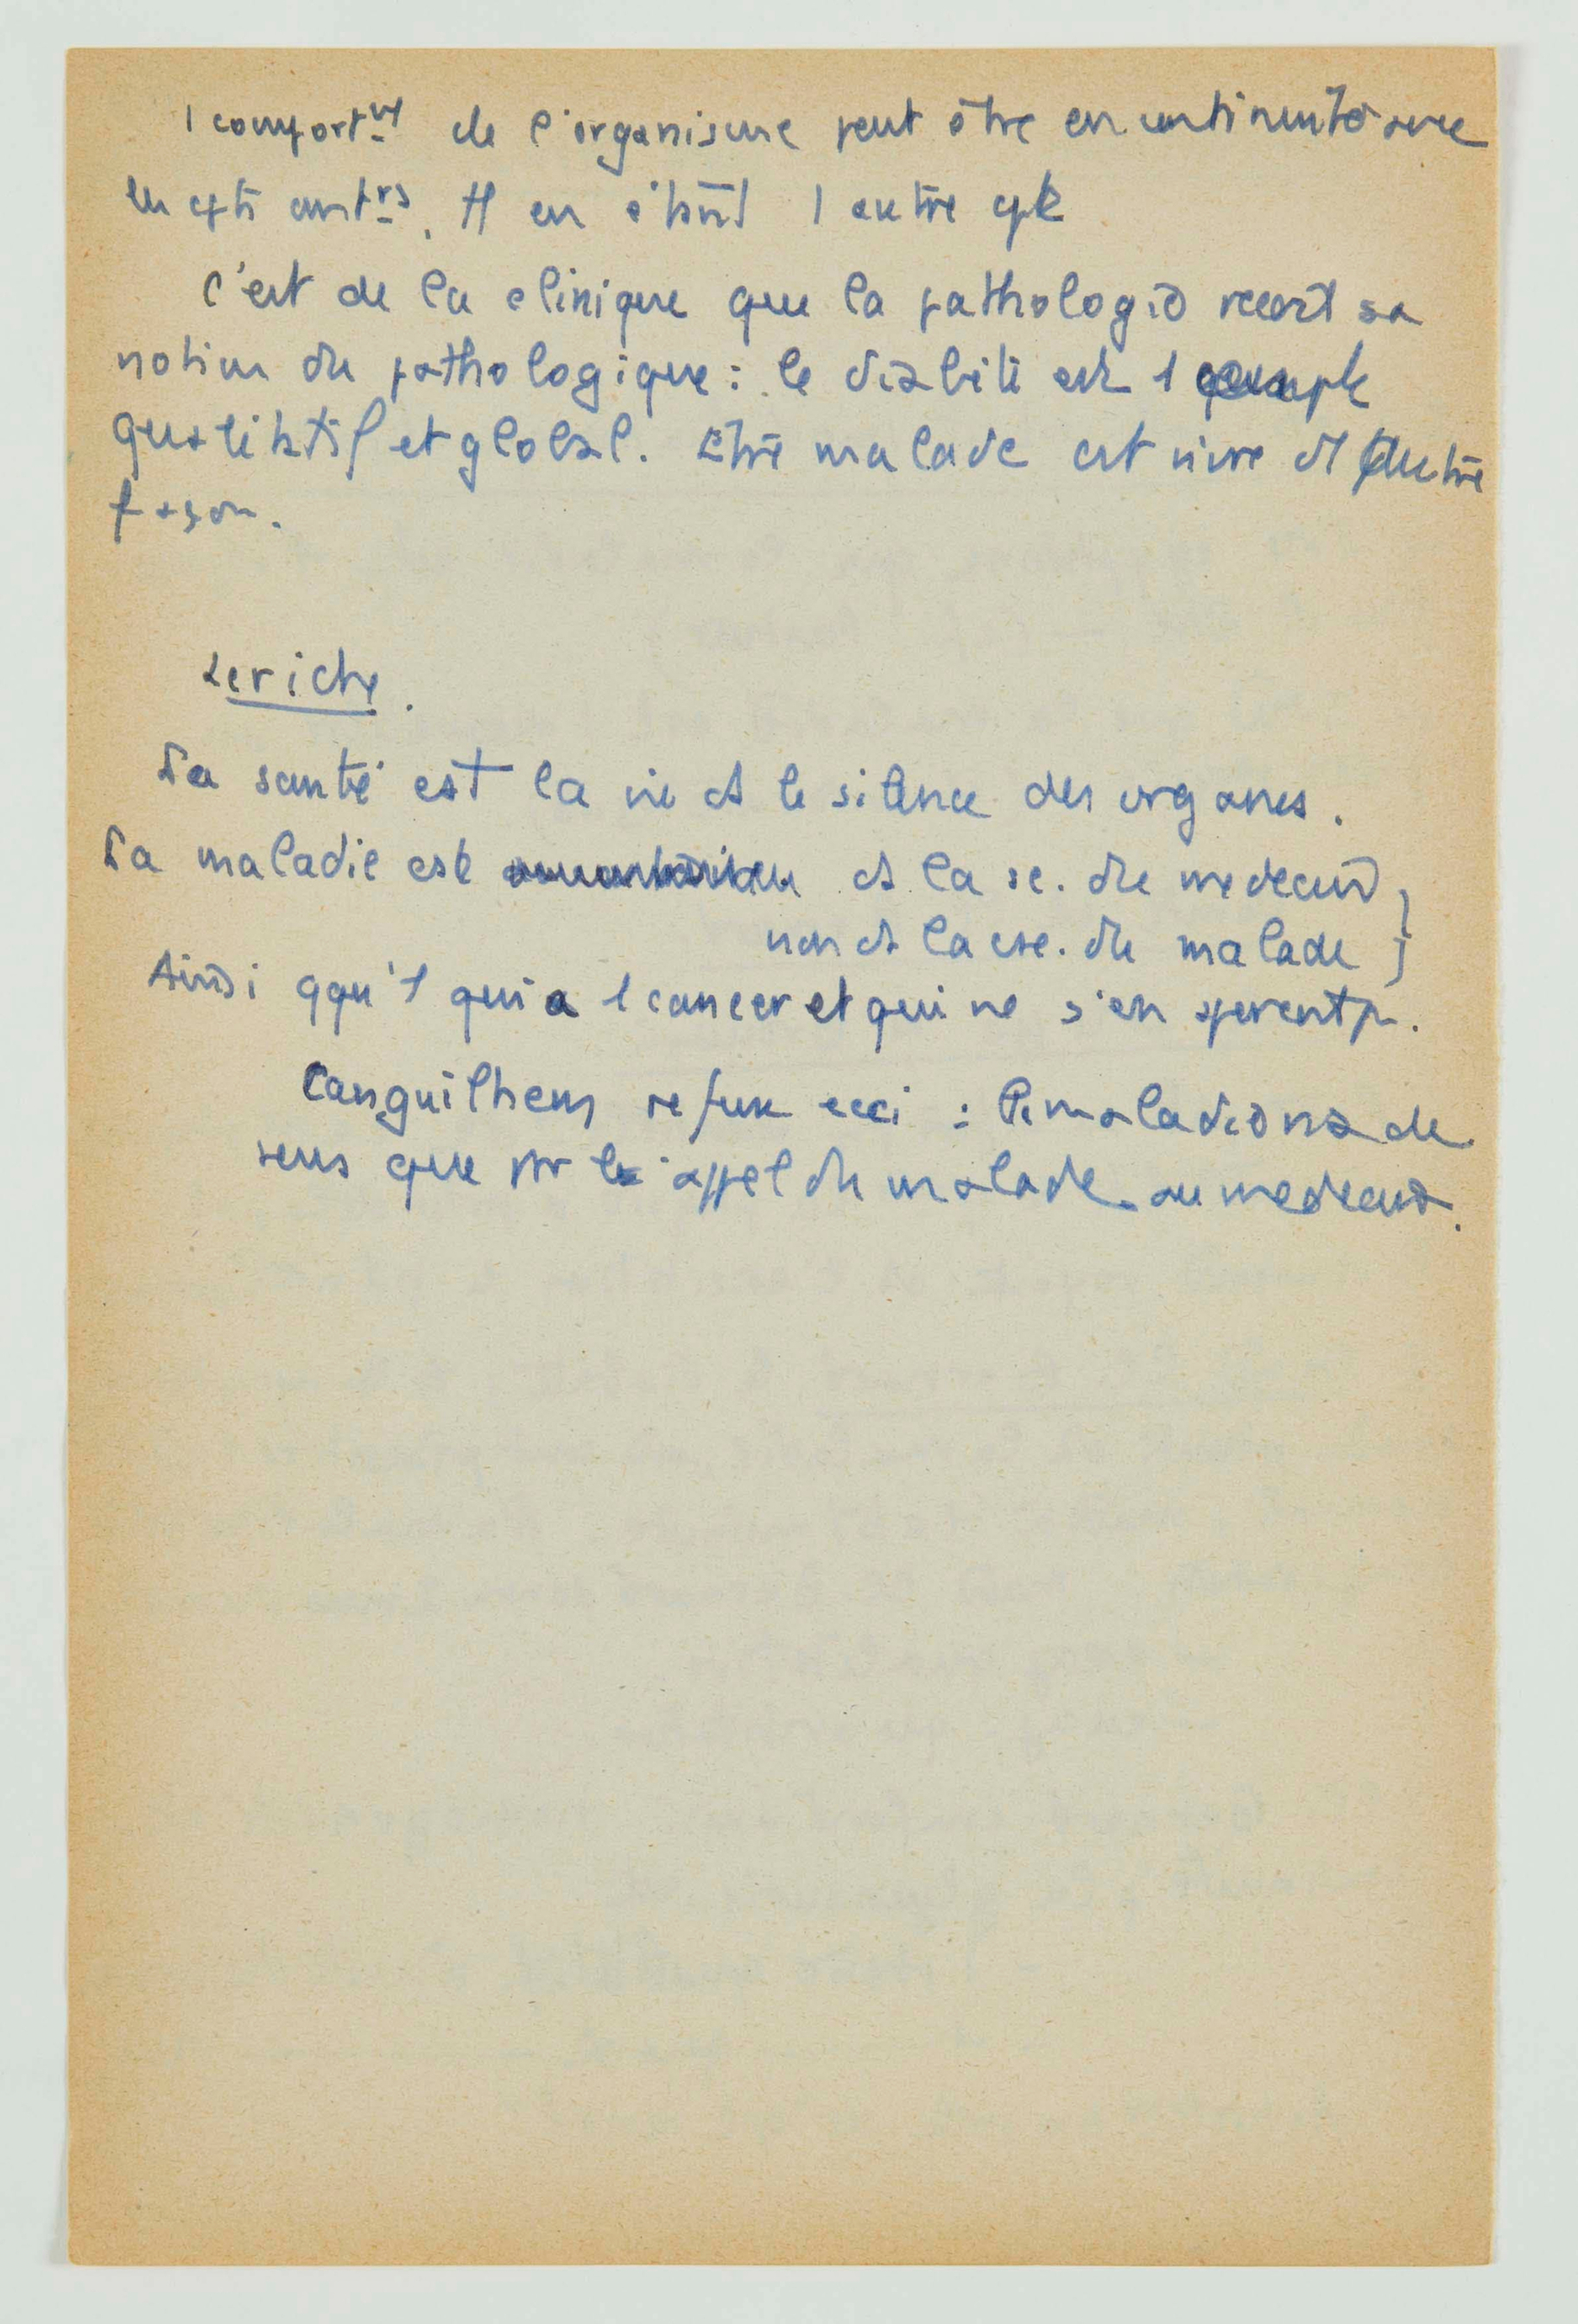 1 comportnt de l'organisme peut être en continuité avec
les cpts antrs. Il en être 1 autre cpt
C'est de la clinique que la pathologie reçoit sa
notion du pathologique : le diabète est 1
qualitatif et global. Etre malade est vivre d'1 autre
façon.
Leriche.
La santé est la vie ds le silence des organes.
La maladie est ds la sc. du médecin,
non ds la csc. du malade ;
Ainsi qqu'1 qui a 1 cancer et qui ne s'en aperçoit p.
Canguilhem refuse ceci : la maladie n'a de
sens que pr l'appel du malade au médecin.